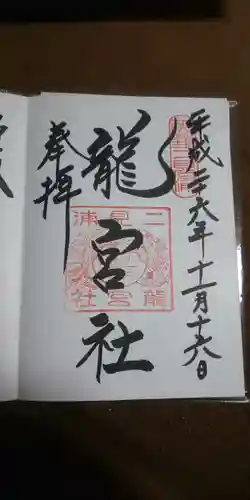 平成二六年十一月十六日
龍宮社
奉拝
二見浦
龍宮社